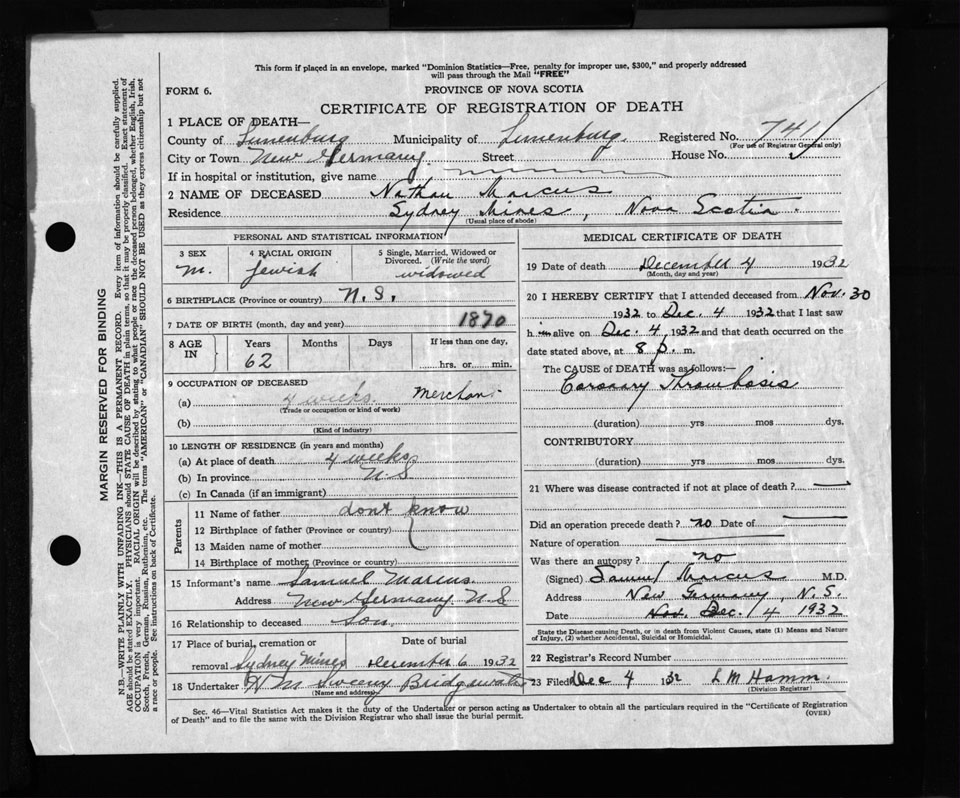 This form if placed in an envelope, marked "Dominion Statistics—Free, penalty for improper use, $300," and properly addressed
will pass through the Mail "FREE"
FORM 6.
PROVINCE OF NOVA SCOTIA
CERTIFICATE OF REGISTRATION OF DEATH
1 PLACE OF DEATH—
County of Lunenburg Municipality of Lunenburg. Registered No. 741
(For use of Registrar General only)
City or Town New Germany. Street House No.
If in hospital or institution, give name
2 NAME OF DECEASED Nathan Marcus
Residence Sydney Mines, Nova Scotia.
(Usual place of abode)
PERSONAL AND STATISTICAL INFORMATION
3 SEX
M.
4 RACIAL ORIGIN
Jewish
5 Single, Married, Widowed or
Divorced. (Write the word)
widowed
6 BIRTHPLACE (Province or country) N.S.
7 DATE OF BIRTH (month, day and year) 1870
8 AGE IN
Years Months Days If less than one day,
62 hrs. or min.
9 OCCUPATION OF DECEASED
(a) 4 weeks. Merchant
(Trade or occupation or kind of work)
(b)
(Kind of industry)
10 LENGTH OF RESIDENCE (in years and months)
(a) At place of death 4 weeks
(b) In province N.S
(c) In Canada (if an immigrant)
Parents
11 Name of father don't know
12 Birthplace of father (Province or country)
13 Maiden name of mother
14 Birthplace of mother (Province or country)
15 Informant's name Samuel Marcus
Address New Germany N.S
16 Relationship to deceased son
17 Place of burial, cremation or Date of burial
removal Sydney Mines December 6 1932
18 Undertaker H M Sweeny Bridgewater
(Name and address)
MEDICAL CERTIFICATE OF DEATH
19 Date of death December 4 1932
(Month, day and year)
20 I HEREBY CERTIFY that I attended deceased from Nov. 30
1932 to Dec. 4 1932 that I last saw
h im alive on Dec. 4, 1932 and that death occurred on
date stated above, at 8 p. m.
The CAUSE of DEATH was as follows:—
Coronary Thrombosis
(duration) yrs mos dys.
CONTRIBUTORY
(duration) yrs. mos dys.
21 Where was disease contracted if not at place of death? —
Did an operation precede death? no Date of —
Nature of operation
Was there an autopsy? no
(Signed) Samuel Marcus M.D.
Address New Germany, N.S.
Date Nov. Dec. 4 1932
State the Disease causing Death, or in death from Violent Causes, state (1) Means and Nature
of Injury, (2) whether Accidental, Suicidal or Homicidal.
22 Registrar's Record Number
23 Filed Dec 4 1932 L M Hamm.
(Division Registrar)
Sec. 46—Vital Statistics Act makes it the duty of the Undertaker or person acting as Undertaker to obtain all the particulars required in the "Certificate of Registration
of Death" and to file the same with the Division Registrar who shall issue the burial permit.
(OVER)
MARGIN RESERVED FOR BINDING
N.B.—WRITE PLAINLY WITH UNFADING INK—THIS IS A PERMANENT RECORD. Every item of information should be carefully supplied.
AGE should be stated EXACTLY. PHYSICIANS should STATE CAUSE OF DEATH in plain terms, so that it may be properly classified. Exact statement of
OCCUPATION is very important. RACIAL ORIGIN will be described by stating to what people or race the deceased person belonged, whether English, Irish,
Scotch, French, German, Russian, Ruthenian, etc. The terms "AMERICAN" or "CANADIAN" SHOULD NOT BE USED as they express citizenship but not
a race or people. See instructions on back of Certificate.